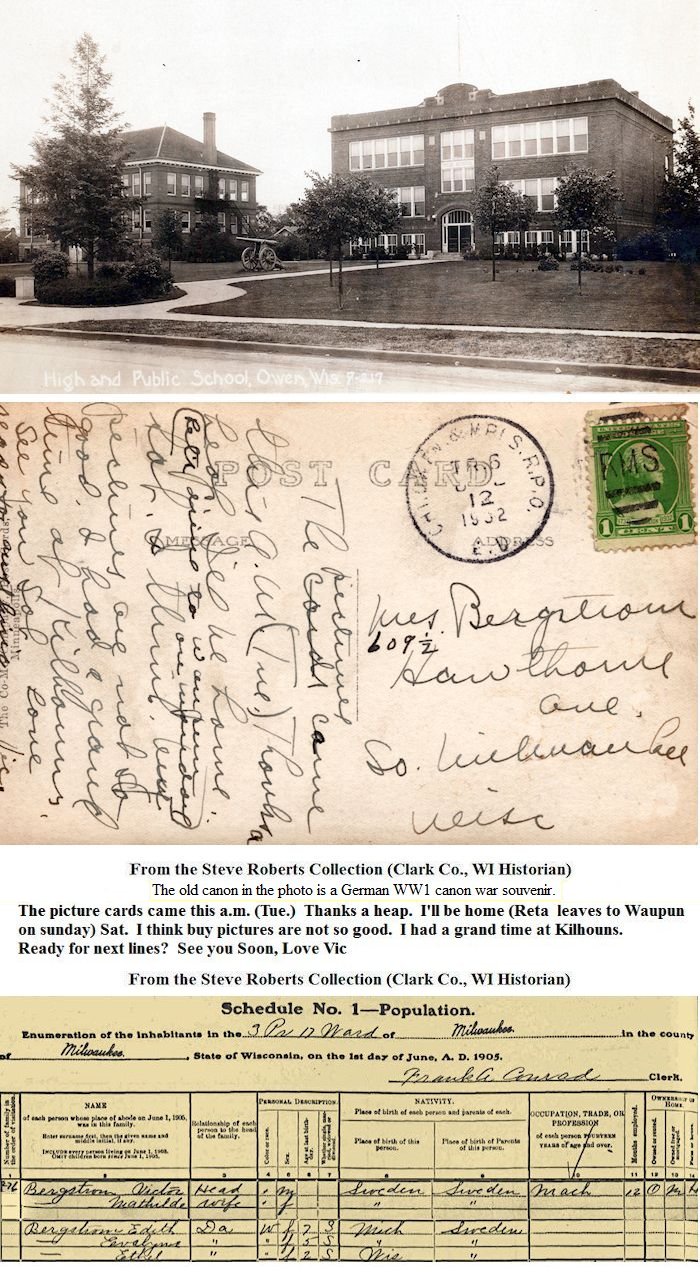 High and Public School, Owen, Wis. 7-217
POST CARD
MESSAGE
ADDRESS
CHI. OWEN & MPLS. R.P.O.
TR. 6
12
1932
E.D.
RMS
1
1
The picture
cards came
this a.m. (Tue.) Thanks a
heap. I'll be home
going to Waupun
on sunday)
Sat. I think
pictures are not so
good. I had a grand
time at Kilhouns.
See you Soon
Love
Vic
Minneapolis
Mrs. Bergstrom
609½
Hawthorne
ave.
So. Milwaukee
Wisc
From the Steve Roberts Collection (Clark Co., WI Historian)
The old canon in the photo is a German WW1 canon war souvenir.
The picture cards came this a.m. (Tue.) Thanks a heap. I'll be home (Reta leaves to Waupun
on sunday) Sat. I think buy pictures are not so good. I had a grand time at Kilhouns.
Ready for next lines? See you Soon, Love Vic
From the Steve Roberts Collection (Clark Co., WI Historian)
Schedule No. 1—Population.
Enumeration of the Inhabitants in the 3 Pr 17 Ward of Milwaukee in the county
of Milwaukee, State of Wisconsin, on the 1st day of June, A. D. 1905.
Frank A. Conrad Clerk.
Number of family in the order of visitation.
NAME
of each person whose place of abode on June 1, 1905, was in this family.
Enter surname first, then the given name and middle initial, if any.
INCLUDE every person living on June 1, 1905.
OMIT children born since June 1, 1905.
Relationship of each person to the head of the family.
PERSONAL DESCRIPTION.
Color or race.
Sex.
Age at last birthday.
NATIVITY.
Place of birth of each person and parents of each.
Place of birth of this person.
Place of birth of Parents of this person.
OCCUPATION, TRADE, OR PROFESSION
of each person FOURTEEN YEARS of age and over.
Months employed.
OWNERSHIP OF HOME.
Owned or rented.
Owned free or mortgaged.
Farm or house.
1 2 3 4 5 6 7 8 9 10 11 12 13 14
276 Bergstrom Victor Head " m Sweden Sweden Mach 12 O M H
— Mathilde wife " f
Bergstrom Edith Da W f 7 S Mich Sweden
— Evelyne " " f 5 S " "
— Ethel " " f 2 S Wis "